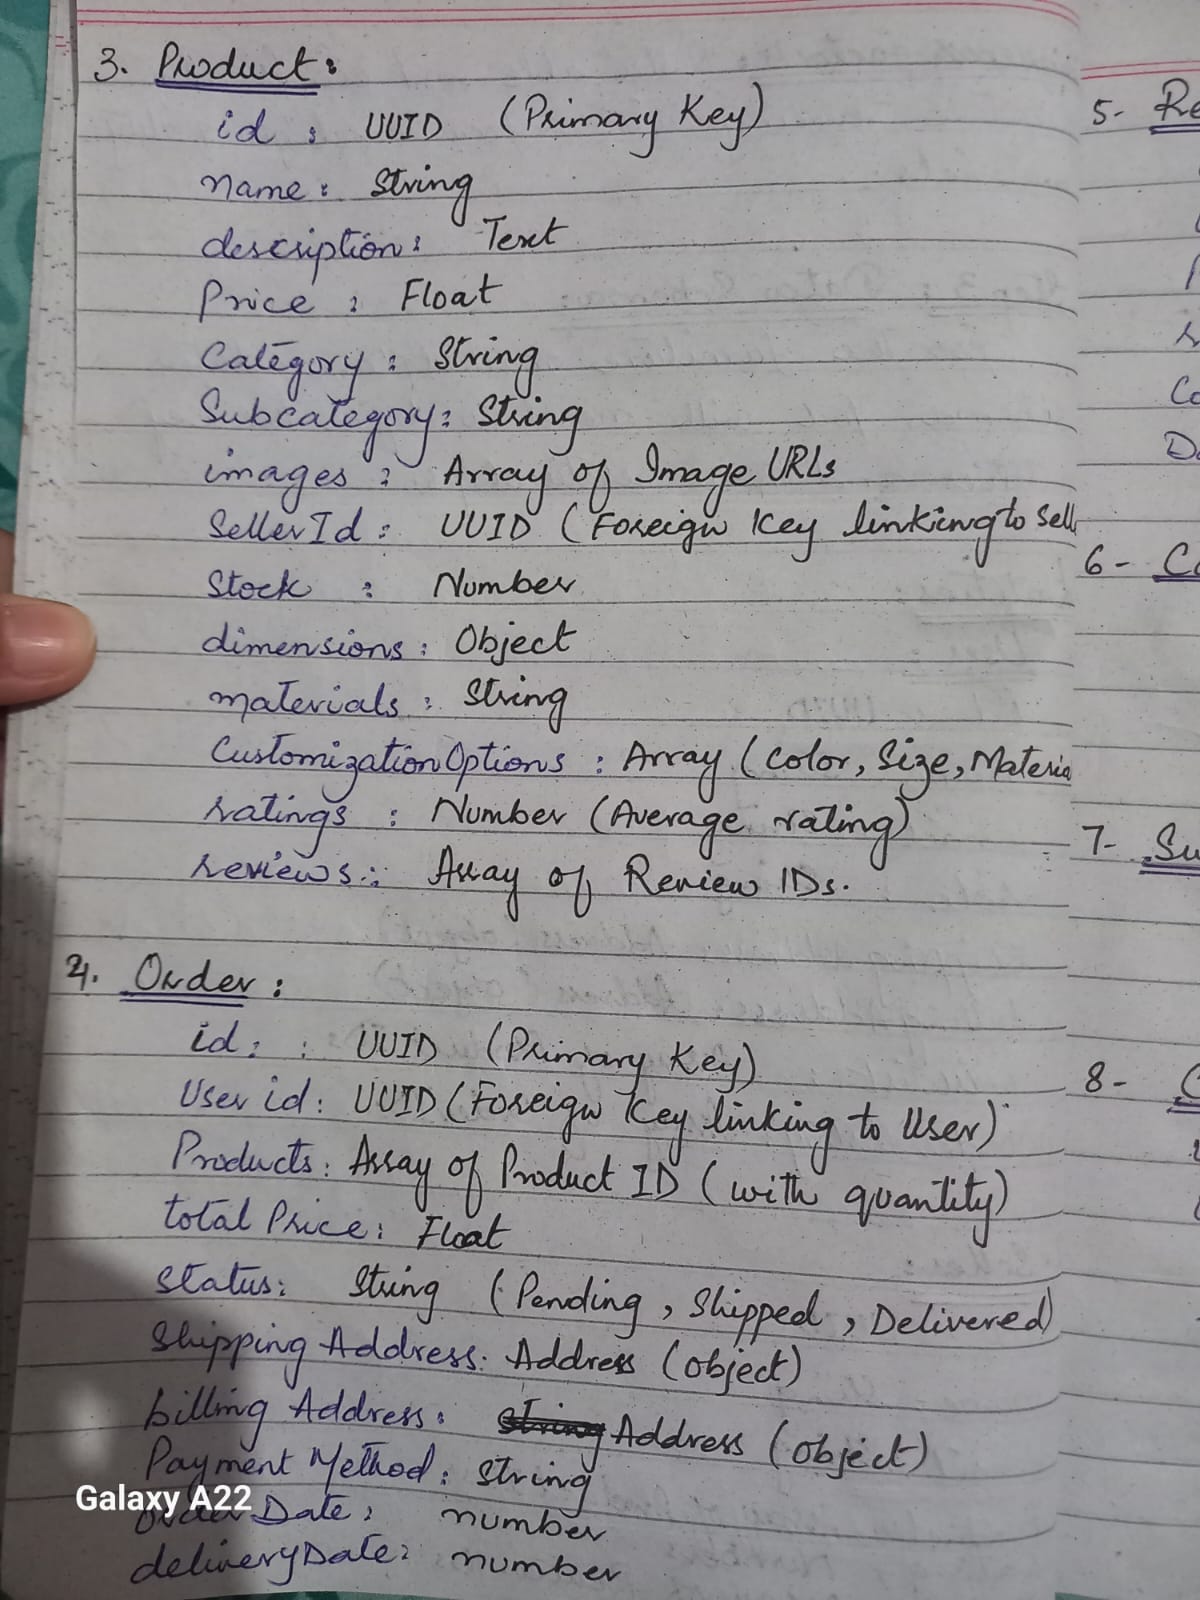 3. Product:
id : UUID (Primary Key)
name: String
description: Text
Price : Float
Category : String
Subcategory: String
images : Array of Image URLs
SellerId : UUID (Foreign Key linking to Sell
Stock : Number
dimensions: Object
materials: String
CustomizationOptions : Array (Color, Size, Materia
ratings : Number (Average rating)
reviews:: Array of Review IDs.
4. Order :
id: : UUID (Primary Key)
User id: UUID (Foreign Key linking to User)
Products: Array of Product ID (with quantity)
total Price: Float
Status: String (Pending, Shipped, Delivered)
Shipping Address: Address (object)
billing Address: string Address (object)
Payment Method: String
orderDate: number
deliveryDate: number
5- Re
Co
Da
6- Co
7- Su
8- C
Galaxy A22